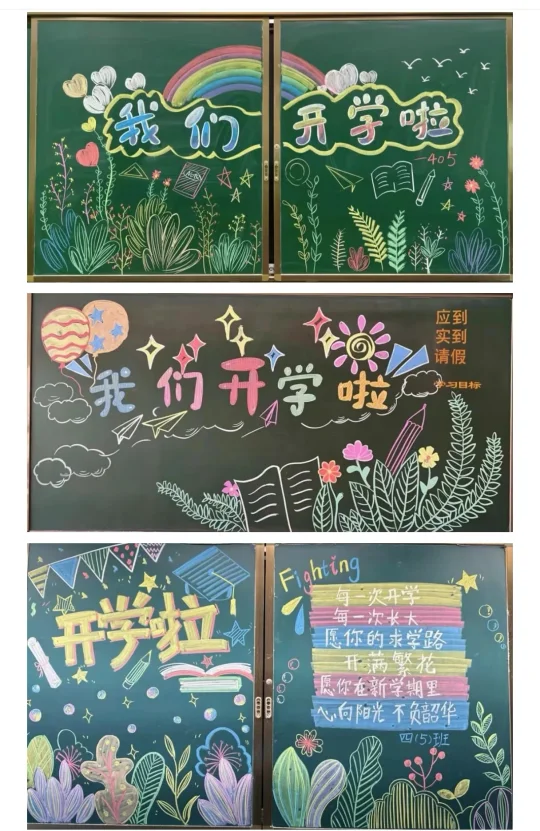 我们开学啦
405
我们开学啦
应到
实到
请假
学习目标
开学啦
Fighting
每一次开学
每一次长大
愿你的求学路
开满繁花
愿你在新学期里
心向阳光 不负韶华
四(5)班